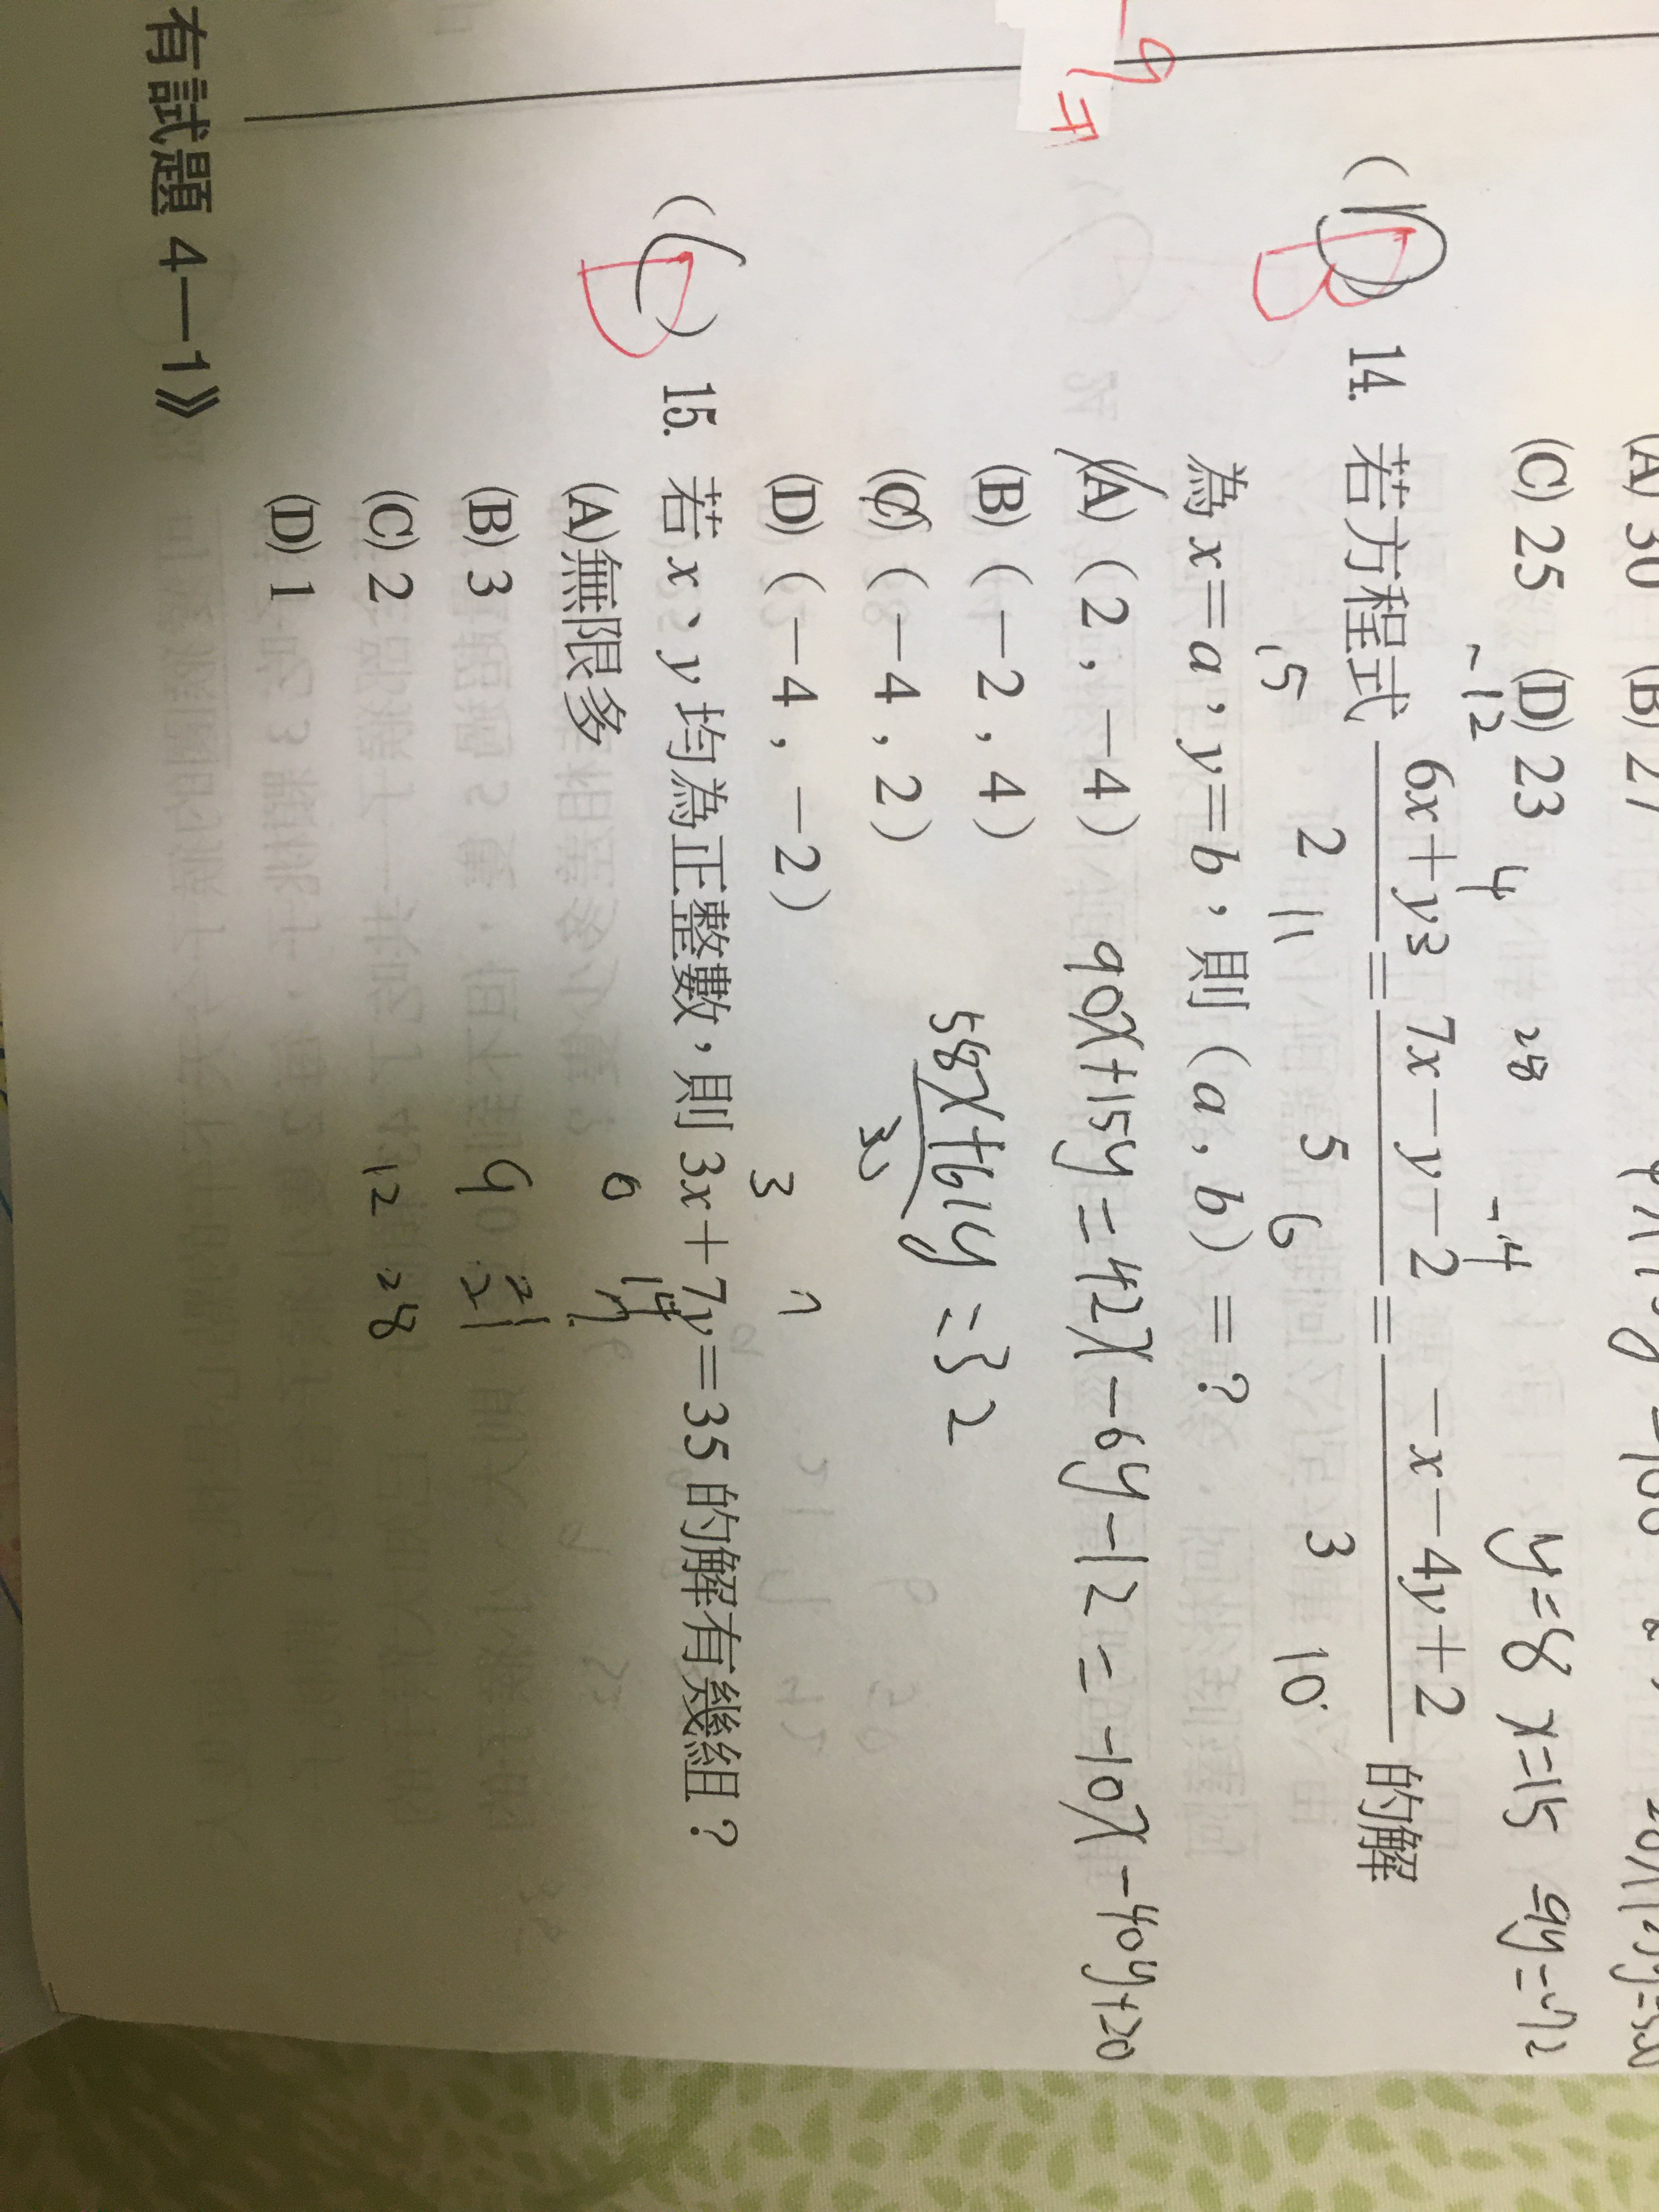 (A) 30 (B) 27
(C) 25 (D) 23
y=8 x=15 -9y=-72
-12 4 28 -4
(D) B 14. 若方程式 6x+y/2 = 7x-y-2/5 = -x-4y+2/3 的解
15 3 11 6 10
為 x=a，y=b，則（a，b）=？
(A)（2，-4）
90x+15y=42x-6y-12=-10x-40y+20
(B)（-2，4）
58x+61y=32
(C)（-4，2）
(D)（-4，-2）
3 7
(C) D 15. 若 x、y 均為正整數，則 3x+7y=35 的解有幾組？
(A)無限多
6 14
(B) 3
9 21
(C) 2
12 28
(D) 1
有試題 4—1》